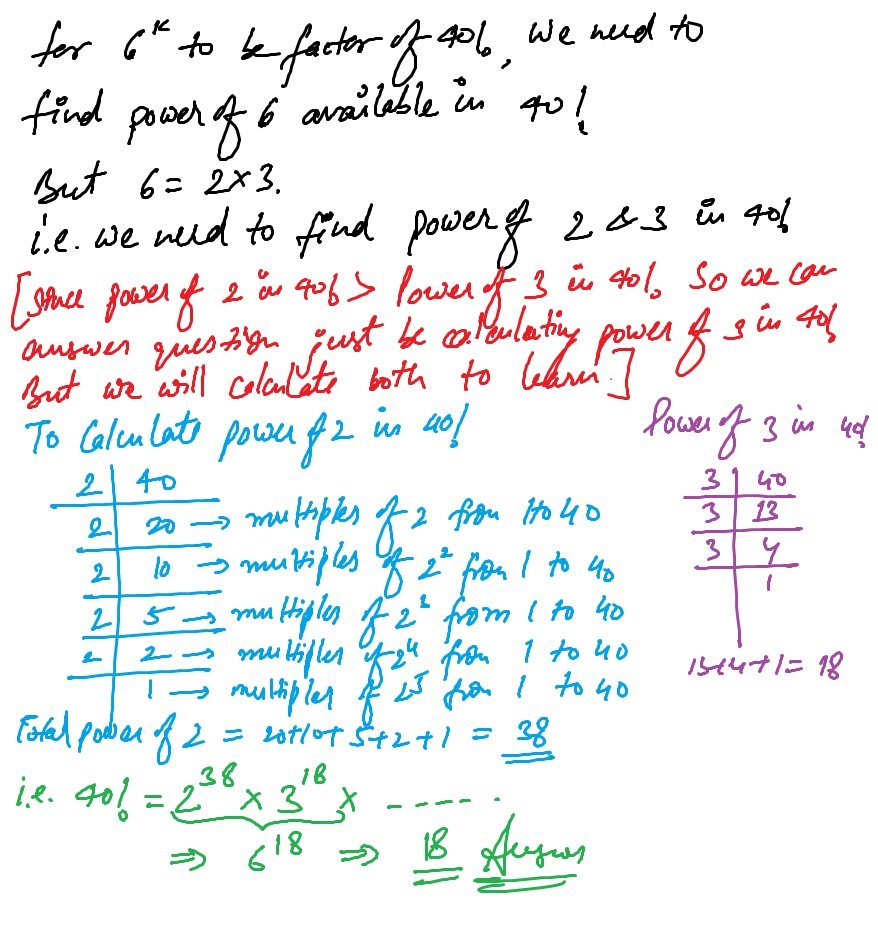 for 6^k to be factor of 40!, we need to
find power of 6 available in 40!
But 6 = 2×3.
i.e. we need to find power of 2 & 3 in 40!
[Since power of 2 in 40! > Power of 3 in 40!, So we can
answer question just be calculating power of 3 in 40!
But we will calculate both to learn.]
To Calculate power of 2 in 40!
2 | 40
2 | 20 → multiples of 2 from 1 to 40
2 | 10 → multiples of 2^2 from 1 to 40
2 | 5 → multiples of 2^3 from 1 to 40
2 | 2 → multiples of 2^4 from 1 to 40
1 → multiples of 2^5 from 1 to 40
Total power of 2 = 20+10+5+2+1 = 38
Power of 3 in 40!
3 | 40
3 | 13
3 | 4
1
13+4+1 = 18
i.e. 40! = 2^38 × 3^18 × ------.
⇒ 6^18 ⇒ 18 Answer